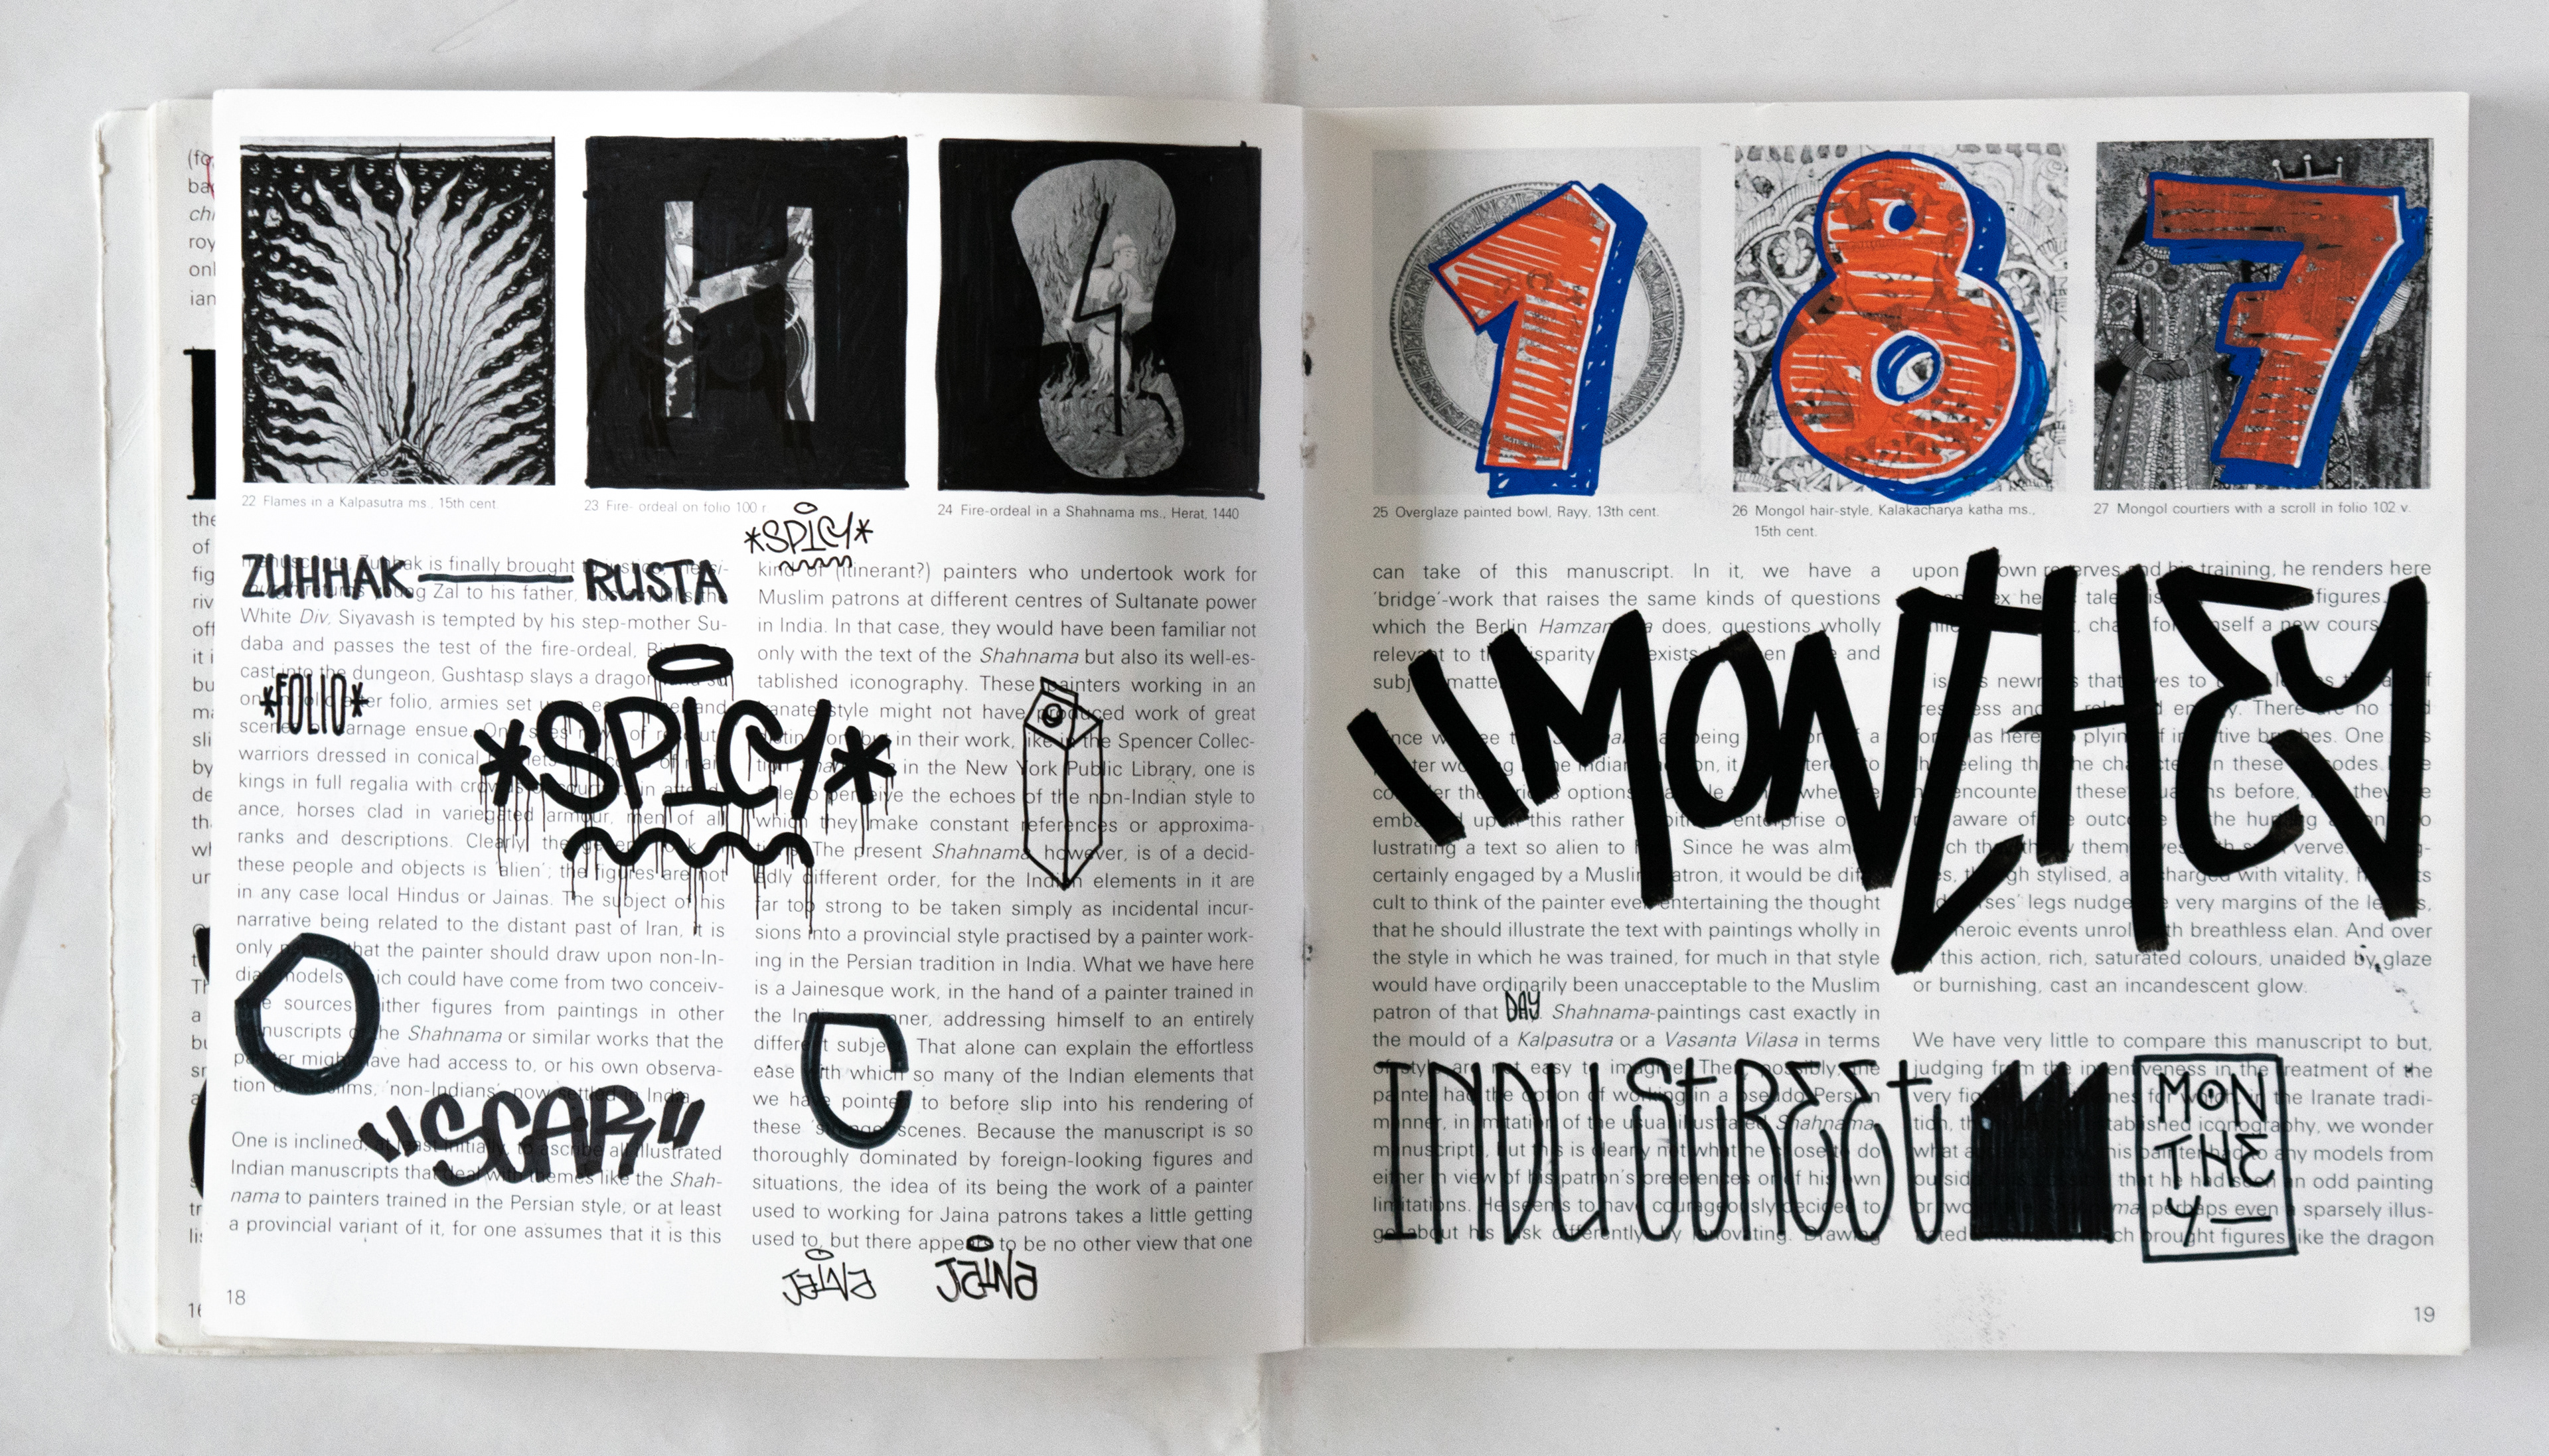 (fo
ba
chi
roy
onl
ian
the
of
fig
riv
off
it i
bu
ma
sli
by
de
tha
wh
ur
Th
a
bu
sr
a
tr
lis
16
H
22 Flames in a Kalpasutra ms., 15th cent.
23 Fire-ordeal on folio 100 r
24 Fire-ordeal in a Shahnama ms., Herat, 1440
*SPICY*
ZUHHAK — RUSTA
manuscripts, Zuhhak is finally brought
Zal to his father, the
White Div, Siyavash is tempted by his step-mother Su-
daba and passes the test of the fire-ordeal,
cast into the dungeon, Gushtasp slays a dragon
*FOLIO*
folio, armies set and
carnage ensue. of
warriors dressed in conical
kings in full regalia with
ance, horses clad in variegated armour, men of all
ranks and descriptions. Clearly the
these people and objects is 'alien'; the figures are not
in any case local Hindus or Jainas. The subject of his
narrative being related to the distant past of Iran, it is
only that the painter should draw upon non-In-
dian models which could have come from two conceiv-
sources: either figures from paintings in other
manuscripts of the Shahnama or similar works that the
painter might have had access to, or his own observa-
tion of Muslims, 'non-Indians' now settled in India.
*SPICY*
O
"SCAR"
One is inclined, at least initially, to ascribe all illustrated
Indian manuscripts that deal with themes like the Shah-
nama to painters trained in the Persian style, or at least
a provincial variant of it, for one assumes that it is this
18
kind of (itinerant?) painters who undertook work for
Muslim patrons at different centres of Sultanate power
in India. In that case, they would have been familiar not
only with the text of the Shahnama but also its well-es-
tablished iconography. These painters working in an
Iranate style might not have produced work of great
distinction but in their work, like in the Spencer Collec-
tion in the New York Public Library, one is
able to perceive the echoes of the non-Indian style to
which they make constant references or approxima-
The present Shahnama, however, is of a decid-
edly different order, for the Indian elements in it are
far too strong to be taken simply as incidental incur-
sions into a provincial style practised by a painter work-
ing in the Persian tradition in India. What we have here
is a Jainesque work, in the hand of a painter trained in
the manner, addressing himself to an entirely
different subject. That alone can explain the effortless
ease with which so many of the Indian elements that
we have pointed to before slip into his rendering of
these scenes. Because the manuscript is so
thoroughly dominated by foreign-looking figures and
situations, the idea of its being the work of a painter
used to working for Jaina patrons takes a little getting
used to, but there appears to be no other view that one
Jaina Jaina
1 8 7
25 Overglaze painted bowl, Rayy, 13th cent.
26 Mongol hair-style, Kalakacharya katha ms.,
15th cent.
27 Mongol courtiers with a scroll in folio 102 v.
can take of this manuscript. In it, we have a
'bridge'-work that raises the same kinds of questions
which the Berlin Hamzanama does, questions wholly
relevant to the disparity exists between and
subject matter
"MONTHEY
Since we see being of a
painter working in the Indian it
consider the options
embarked upon this rather enterprise of
lustrating a text so alien to Since he was almost
certainly engaged by a Muslim patron, it would be diffi-
cult to think of the painter ever entertaining the thought
that he should illustrate the text with paintings wholly in
the style in which he was trained, for much in that style
would have ordinarily been unacceptable to the Muslim
patron of that DAY. Shahnama-paintings cast exactly in
the mould of a Kalpasutra or a Vasanta Vilasa in terms
of style are not easy to imagine. Then possibly, the
painter had the option of working in a pseudo-Persian
manner, in imitation of the usual illustrated Shahnama
manuscripts, but this is clearly not what he chose to do
either in view of his patron's preferences or of his own
limitations. He seems to have courageously decided to
go about his task differently, by innovating. Drawing
INDUSTREET
upon own reserves and his training, he renders here
figures.
for himself a new course
is newness that to
There are no
here plying of One
feeling that the characters in these episodes
encountered these situations before,
aware of outcome the
them verve.
though stylised, are charged with vitality,
horses' legs nudge very margins of the leaves,
heroic events unroll with breathless elan. And over
this action, rich, saturated colours, unaided by glaze
or burnishing, cast an incandescent glow.
We have very little to compare this manuscript to but,
judging from the inventiveness in the treatment of the
very for which, in the Iranate tradi-
tion, established iconography, we wonder
what this painter had to any models from
outside. that he had seen an odd painting
or two perhaps even a sparsely illus-
trated which brought figures like the dragon
MON
THE
Y
19